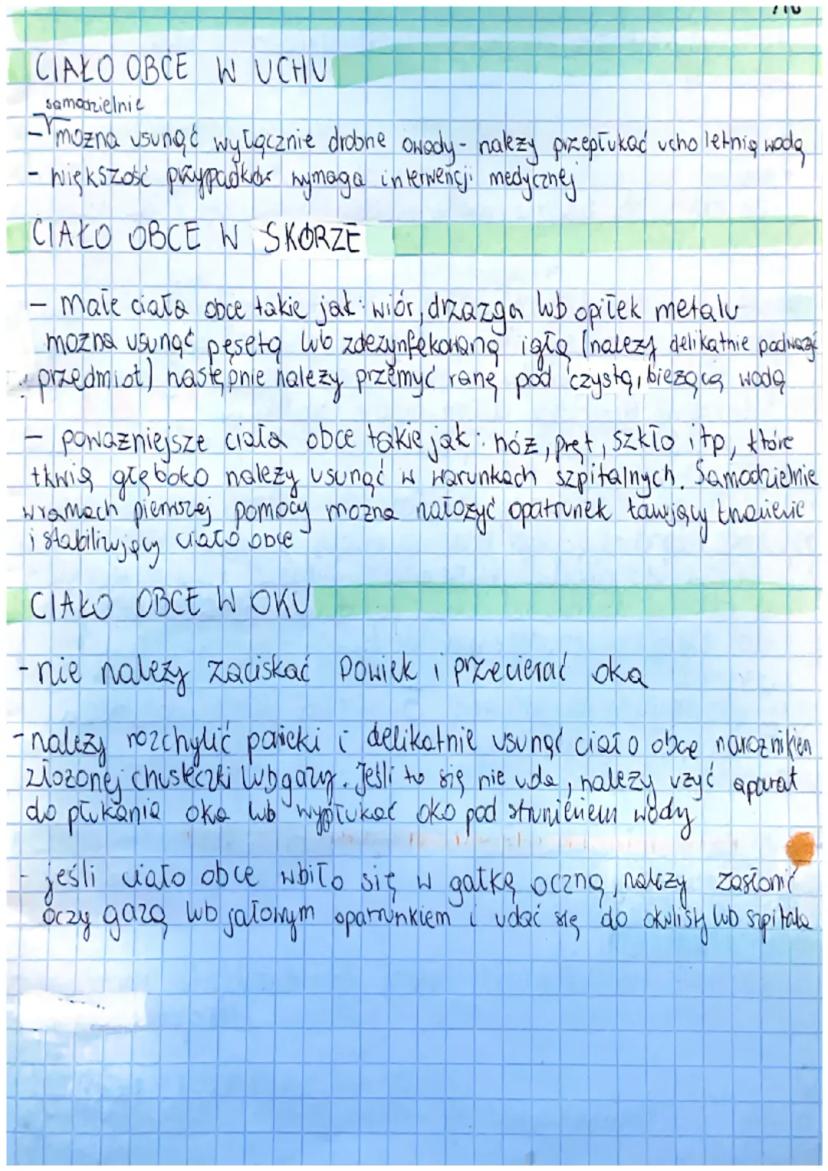 CIAŁO OBCE W UCHU
samodzielnie
- można usunąć wyłącznie drobne owady - należy przepłukać ucho letnią wodą
- większość przypadków wymaga interwencji medycznej
CIAŁO OBCE W SKÓRZE
- małe ciała obce takie jak: wiór, drzazga lub opiłek metalu
można usunąć pęsetą lub zdezynfekowaną igłą (należy delikatnie podważyć
przedmiot) następnie należy przemyć ranę pod czystą, bieżącą wodą
- poważniejsze ciała obce takie jak: nóż, pręt, szkło itp, które
tkwią głęboko należy usunąć w warunkach szpitalnych. Samodzielnie
w ramach pierwszej pomocy można nałożyć opatrunek tamujący krwawienie
i stabilizujący ciało obce
CIAŁO OBCE W OKU
- nie należy zaciskać powiek i przecierać oka
- należy rozchylić powieki i delikatnie usunąć ciało obce narożnikiem
złożonej chusteczki lub gazy. Jeśli to się nie uda, należy użyć aparat
do płukania oka lub wypłukać oko pod strumieniem wody
- jeśli ciało obce wbiło się w gałkę oczną, należy zasłonić
oczy gazą lub jałowym opatrunkiem i udać się do okulisty lub szpitala